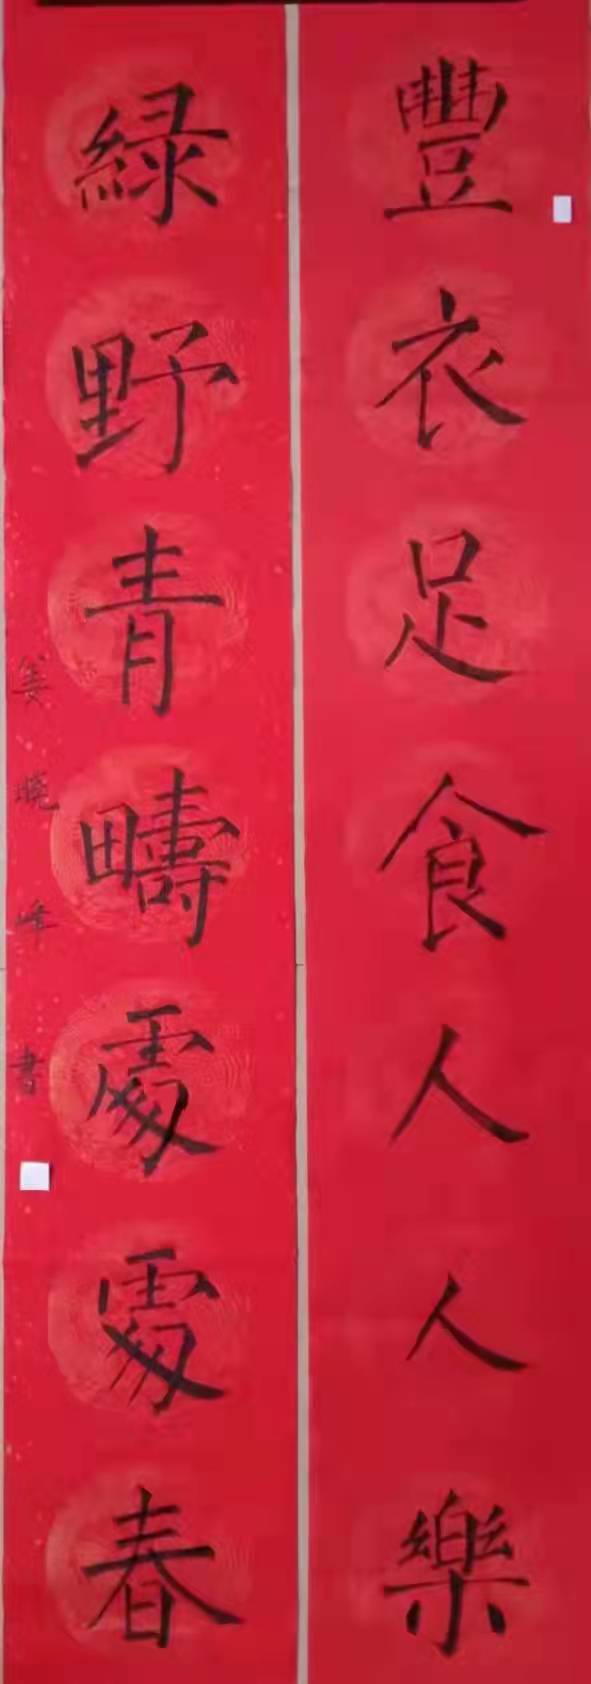 豐衣足食人人樂
綠野青疇處處春
姜曉峰書